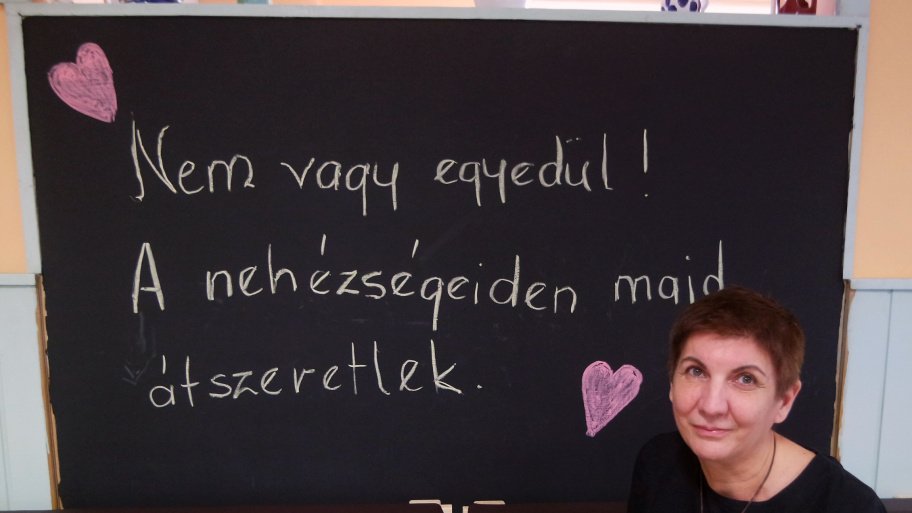 Nem vagy egyedül!
A nehézségeiden majd
átszeretlek.